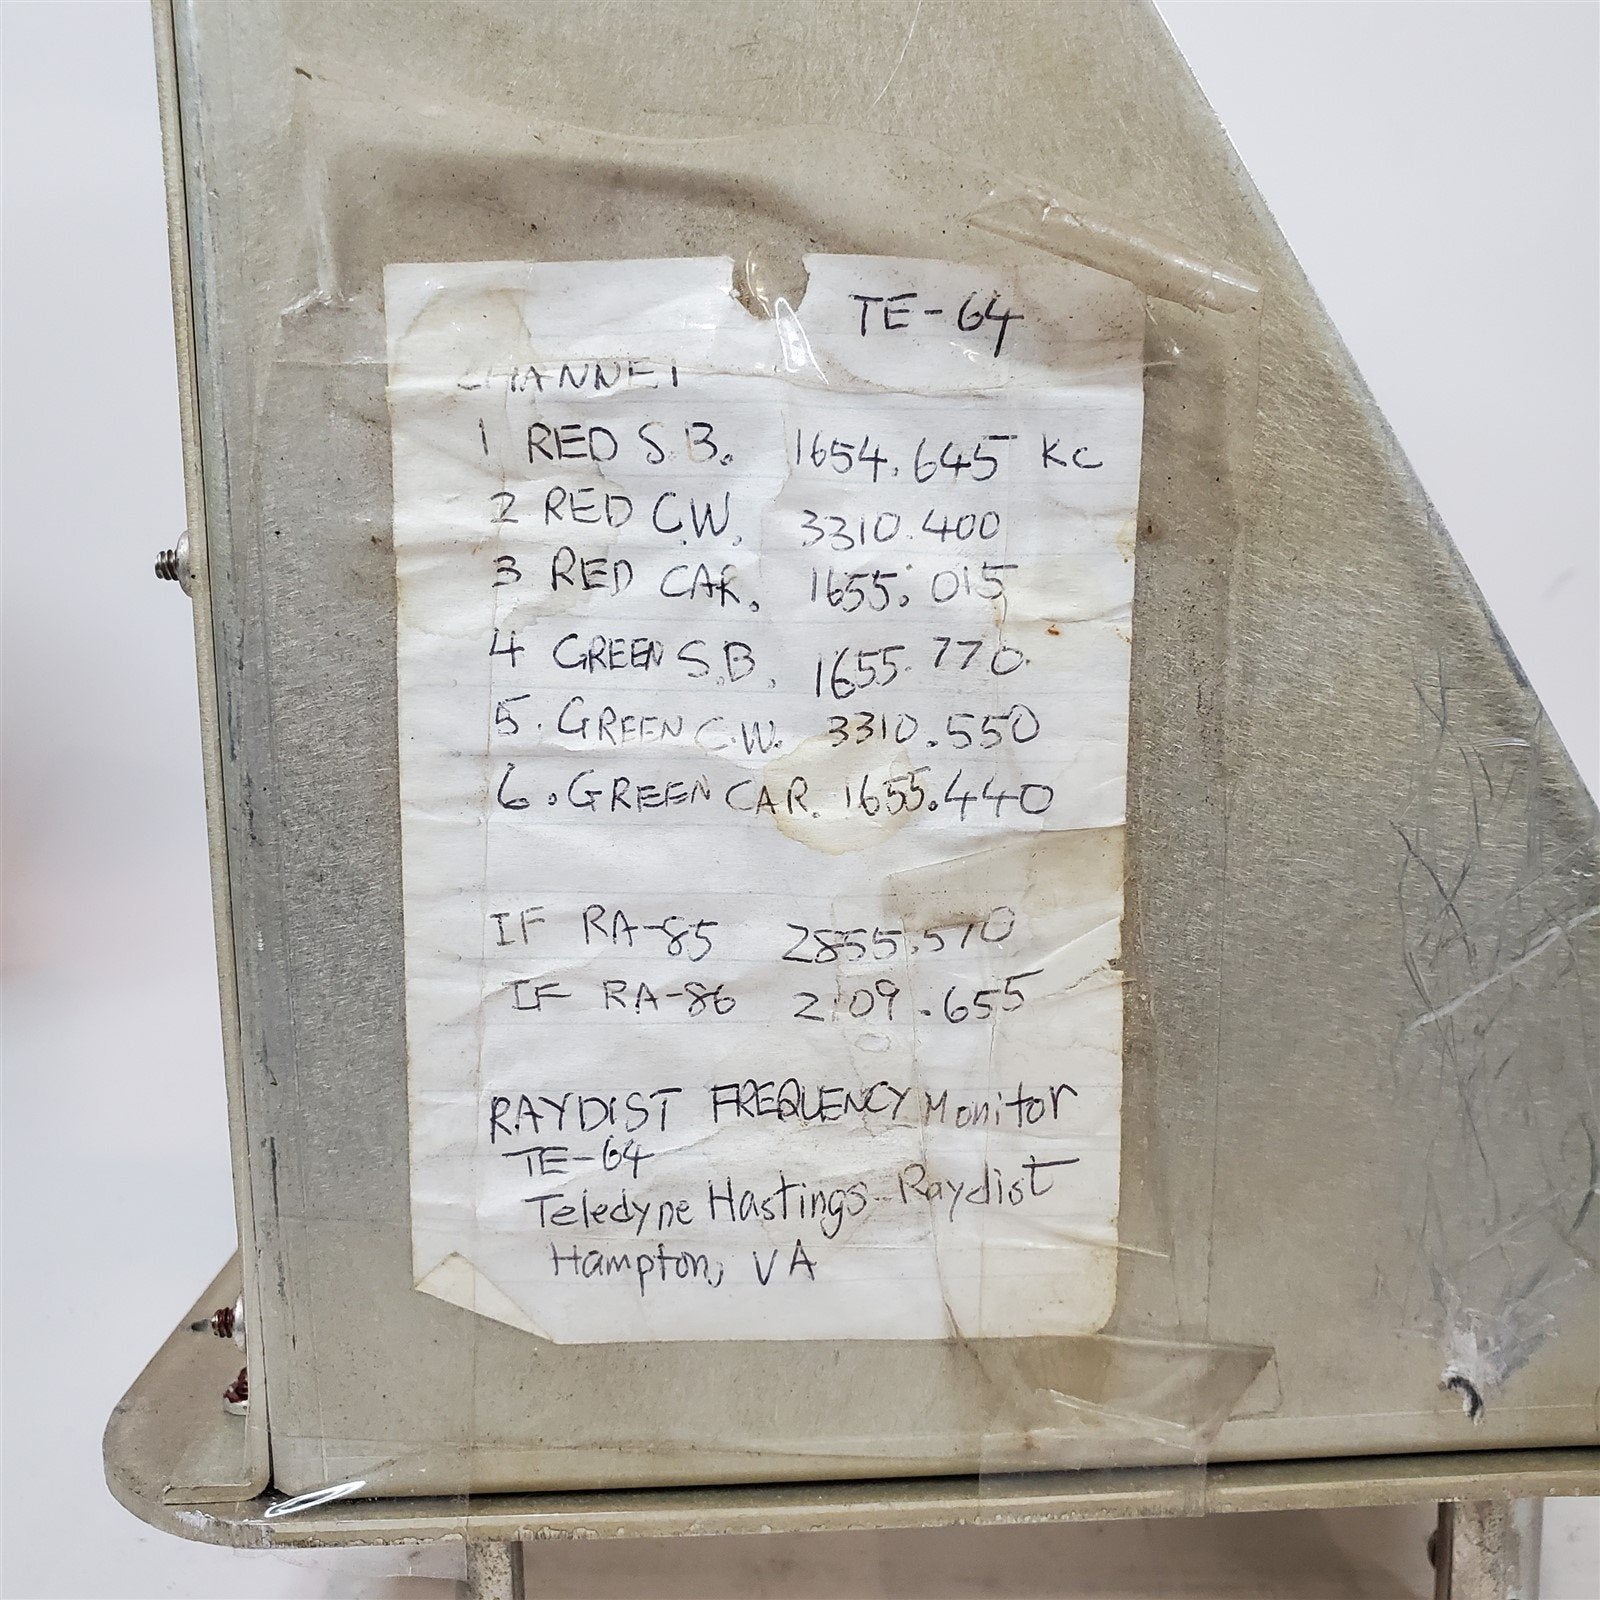 TE-64
CHANNEL
1 RED S.B. 1654.645 KC
2 RED C.W. 3310.400
3 RED CAR. 1655.015
4 GREEN S.B. 1655.770
5. GREEN C.W. 3310.550
6. GREEN CAR. 1655.440
IF RA-85 2855.570
IF RA-86 2109.655
RAYDIST FREQUENCY Monitor
TE-64
Teledyne Hastings-Raydist
Hampton, VA